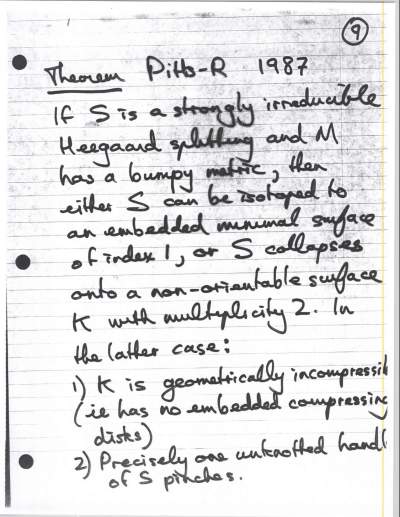 9
Theorem Pitts-R 1987
If S is a strongly irreducible
Heegaard splitting and M
has a bumpy metric, then
either S can be isotoped to
an embedded minimal surface
of index 1, or S collapses
onto a non-orientable surface
K with multiplicity 2. In
the latter case:
1) K is geometrically incompressib
(ie has no embedded compressing
disks)
2) Precisely one unknotted handl
of S pinches.